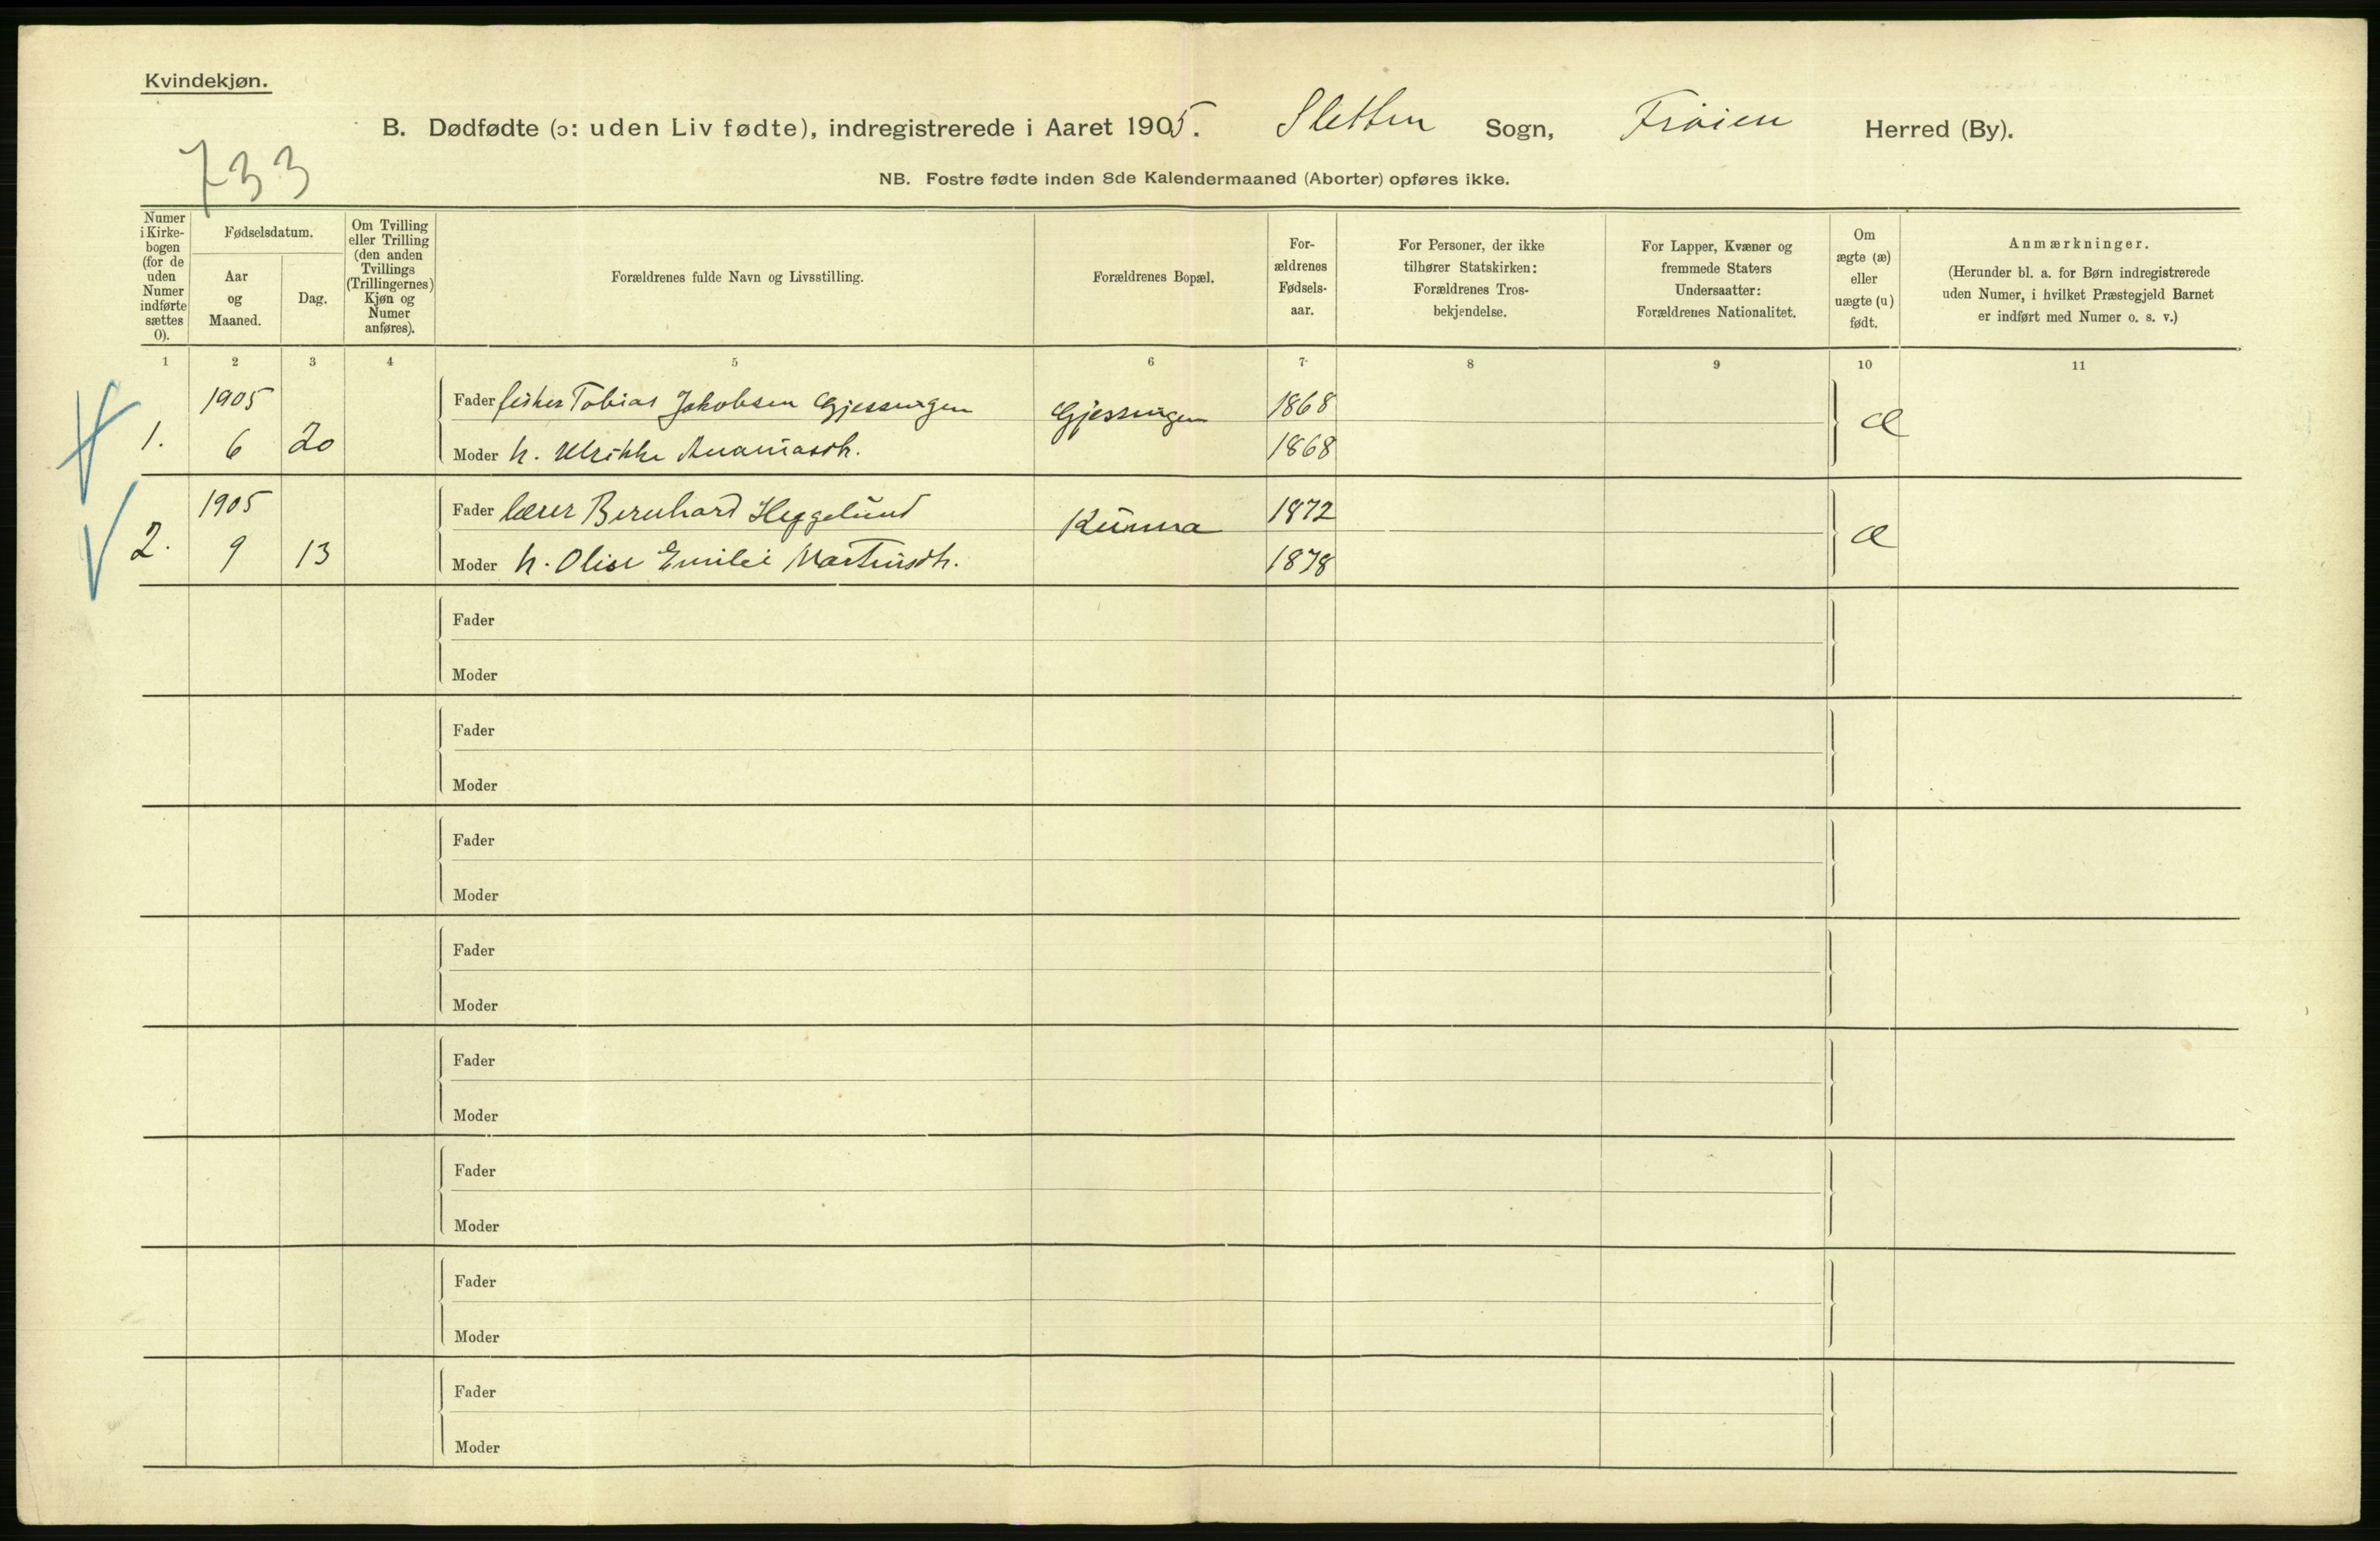 Kvindekjøn.
B. Dødfødte (ɔ: uden Liv fødte), indregistrerede i Aaret 1905. Sletten Sogn, Frøien Herred (By).
733
NB. Fostre fødte inden 8de Kalendermaaned (Aborter) opføres ikke.
Numer i Kirke-bogen (for de uden Numer indførte sættes 0).
Fødselsdatum.
Aar og Maaned.
Dag.
Om Tvilling eller Trilling (den anden Tvillings (Trillingernes) Kjøn og Numer anføres).
Forældrenes fulde Navn og Livsstilling.
Forældrenes Bopæl.
For-ældrenes Fødsels-aar.
For Personer, der ikke tilhører Statskirken: Forældrenes Tros-bekjendelse.
For Lapper, Kvæner og fremmede Staters Undersaatter: Forældrenes Nationalitet.
Om ægte (æ) eller uægte (u) født.
Anmærkninger.
(Herunder bl. a. for Børn indregistrerede uden Numer, i hvilket Præstegjeld Barnet er indført med Numer o. s. v.)
1 2 3 4 5 6 7 8 9 10 11
1905 Fader fisker Tobias Jakobsen Gjessingen Gjessingen 1868 æ
1. 6 20 Moder h. Ulrikke Ananiasdh. 1868
1905 Fader lærer Bernhard Heggelund Kunna 1872 æ
2. 9 13 Moder h. Olise Emilie Martinsdh. 1878
Fader
Moder
Fader
Moder
Fader
Moder
Fader
Moder
Fader
Moder
Fader
Moder
Fader
Moder
Fader
Moder